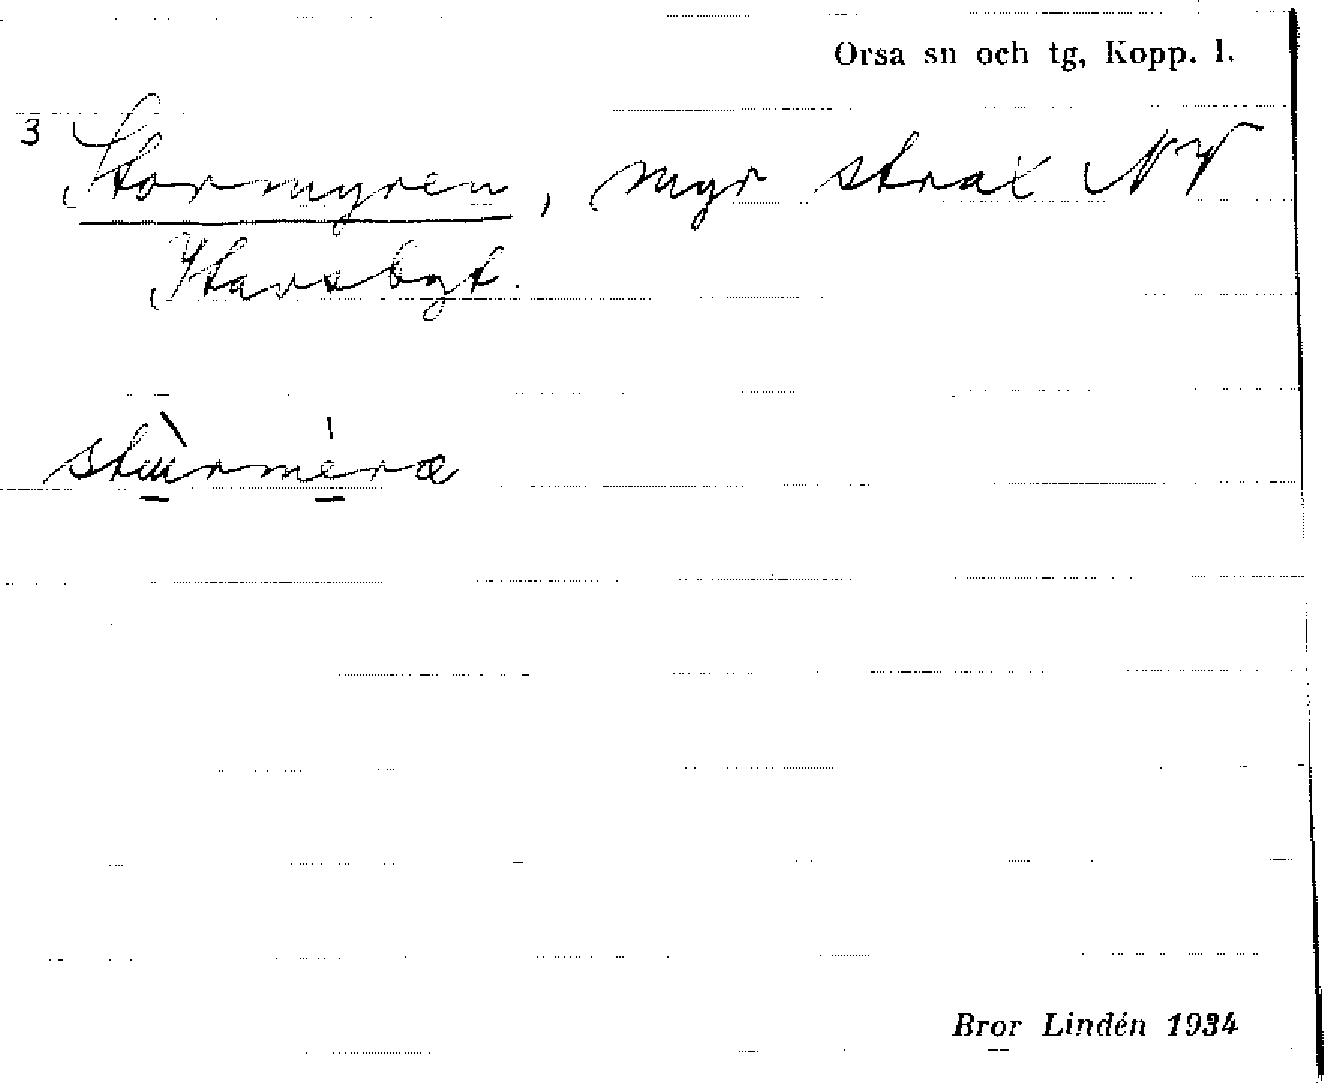 Orsa sn och tg, Kopp. l.
3 Stormyren, myr strax NV
Stavsbgt.
stùrmèræ
Bror Lindén 1934